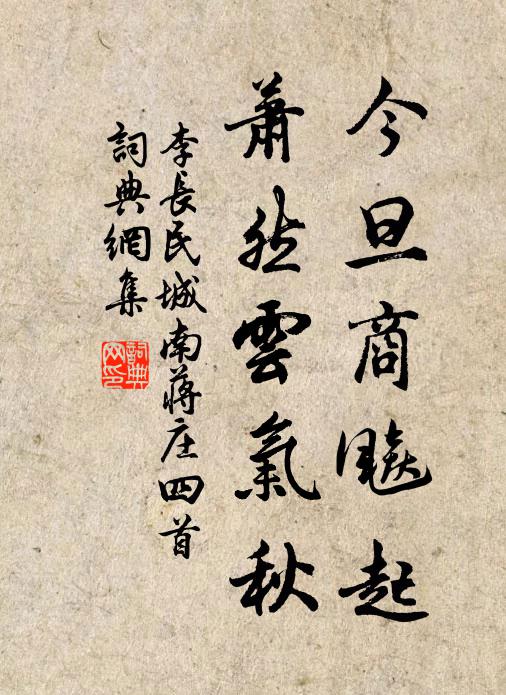 今旦商飈起
蕭然雲氣秋
李長民城南蔣庄四首
詞典網集
詞典网印